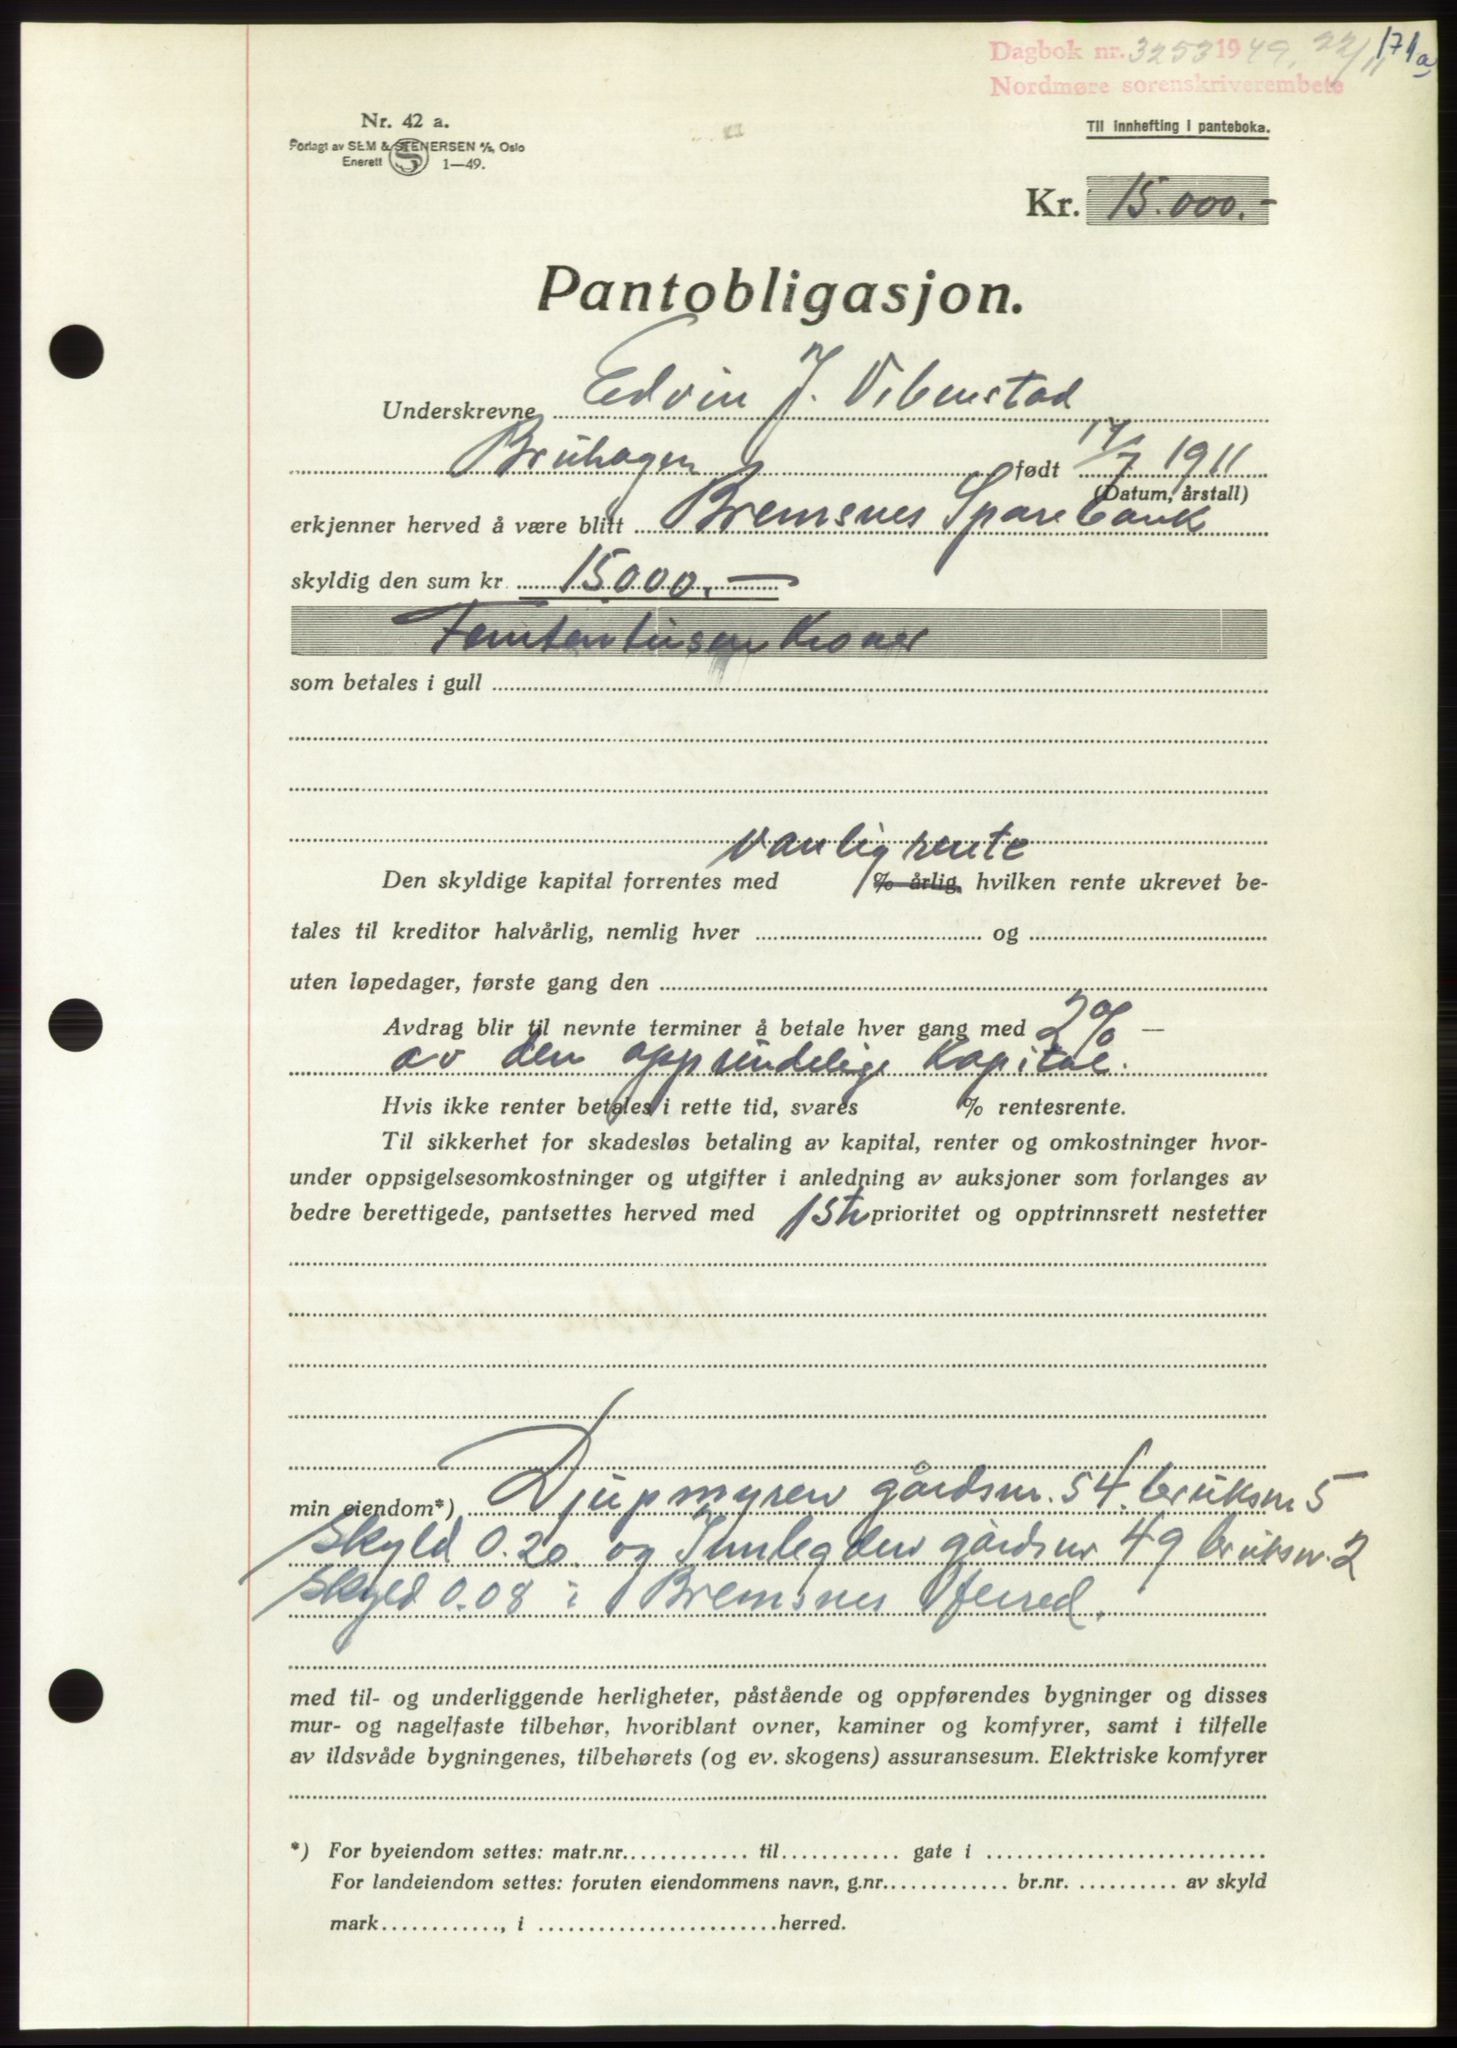 171a
Dagbok nr. 3253 1949, 22/11
Nordmøre sorenskriverembete
Nr. 42 a.
Forlagt av SEM & STENERSEN A/S, Oslo
Enerett S 1—49.
Til innhefting i panteboka.
Kr. 15.000.-
Pantobligasjon.
Underskrevne Edvin J. Vibenstad
Bruhagen født 17/7 1911
(Datum, årstall)
erkjenner herved å være blitt Bremsnes Sparebank
skyldig den sum kr. 15000.—
Femtentusen Kroner
som betales i gull
vanlig rente
Den skyldige kapital forrentes med % årlig, hvilken rente ukrevet be-
tales til kreditor halvårlig, nemlig hver og
uten løpedager, første gang den
Avdrag blir til nevnte terminer å betale hver gang med 2% —
av den opprindelige Kapital.
Hvis ikke renter betales i rette tid, svares % rentesrente.
Til sikkerhet for skadesløs betaling av kapital, renter og omkostninger hvor-
under oppsigelsesomkostninger og utgifter i anledning av auksjoner som forlanges av
bedre berettigede, pantsettes herved med 1ste prioritet og opptrinnsrett nestetter
min eiendom*) Djupmyren gårdsnr. 54. bruksnr 5
skyld 0.20 og Innlegden gårdsnr 49 bruksnr. 2
skyld 0.08 i Bremsnes Herred.
med til- og underliggende herligheter, påstående og oppførendes bygninger og disses
mur- og nagelfaste tilbehør, hvoriblant ovner, kaminer og komfyrer, samt i tilfelle
av ildsvåde bygningenes, tilbehørets (og ev. skogens) assuransesum. Elektriske komfyrer
*) For byeiendom settes: matr.nr. til gate i
For landeiendom settes: foruten eiendommens navn, g.nr. br.nr. av skyld
mark , i herred.